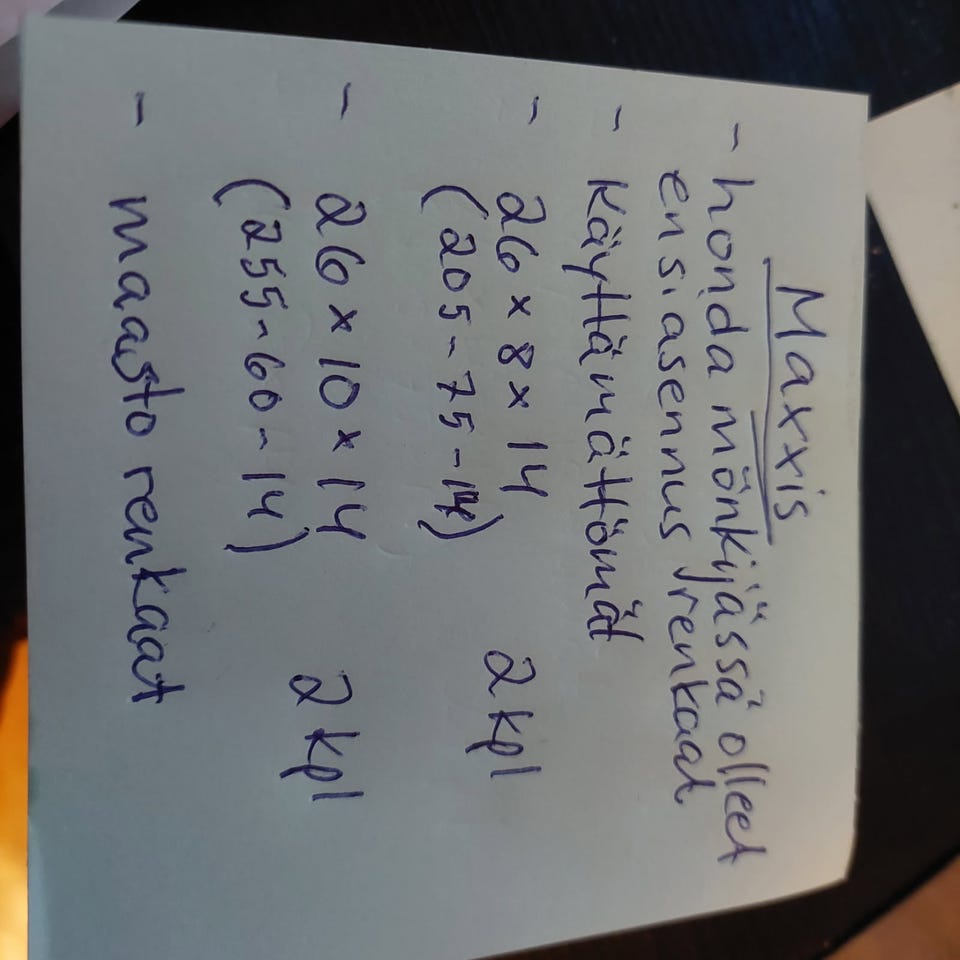 Maxxis
- honda mönkijässä olleet
ensiasennus renkaat
- Käyttämättömät
- 26 x 8 x 14 2 kpl
(205-75-14)
- 26 x 10 x 14 2 kpl
(255-60-14)
- maasto renkaat